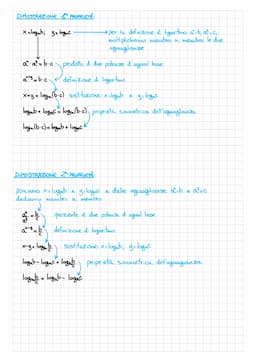 DIMOSTRAZIONE 1ª PROPRIETÀ:
x = logₐb; y = logₐc → per la definizione di logaritmo aˣ=b; aʸ=c,
moltiplichiamo membro a membro le due
uguaglianze
aˣ · aʸ = b · c prodotto di due potenze di uguali base
aˣ⁺ʸ = b · c definizione di logaritmo
x+y = logₐ(b·c) sostituzione: x=logₐb; y=logₐc
logₐb + logₐc = logₐ(b·c) proprietà simmetrica dell'uguaglianza
logₐ(b·c) = logₐb + logₐc
DIMOSTRAZIONE 2ª PROPRIETÀ:
poniamo x=logₐb e y=logₐc e dalle uguaglianze aˣ=b e aʸ=c
dividiamo membro a membro
aˣ/aʸ = b/c quoziente di due potenze di uguali base
aˣ⁻ʸ = b/c definizione di logaritmo
x-y = logₐ b/c sostituzione: x=logₐb; y=logₐc
logₐb - logₐc = logₐ b/c proprietà simmetrica dell'uguaglianza
logₐ b/c = logₐb - logₐc